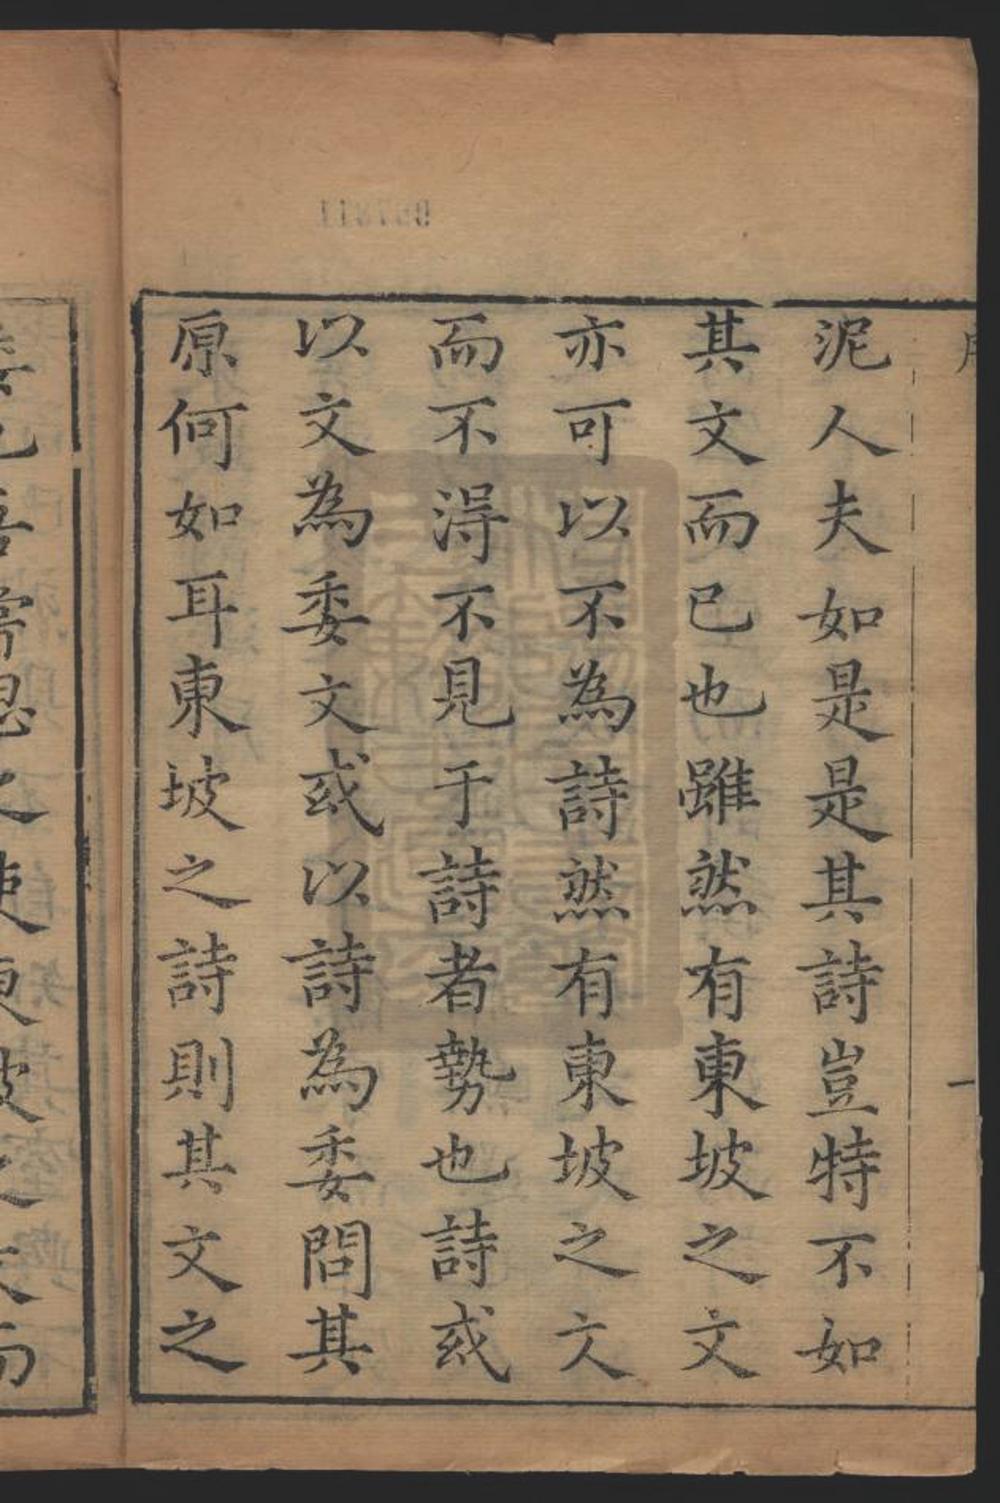 泥人夫如是是其詩豈特不如
其文而已也雖然有東坡之文
亦可以不為詩然有東坡之文
而不淂不見于詩者勢也詩或
以文為委文或以詩為委問其
原何如耳東坡之詩則其文之